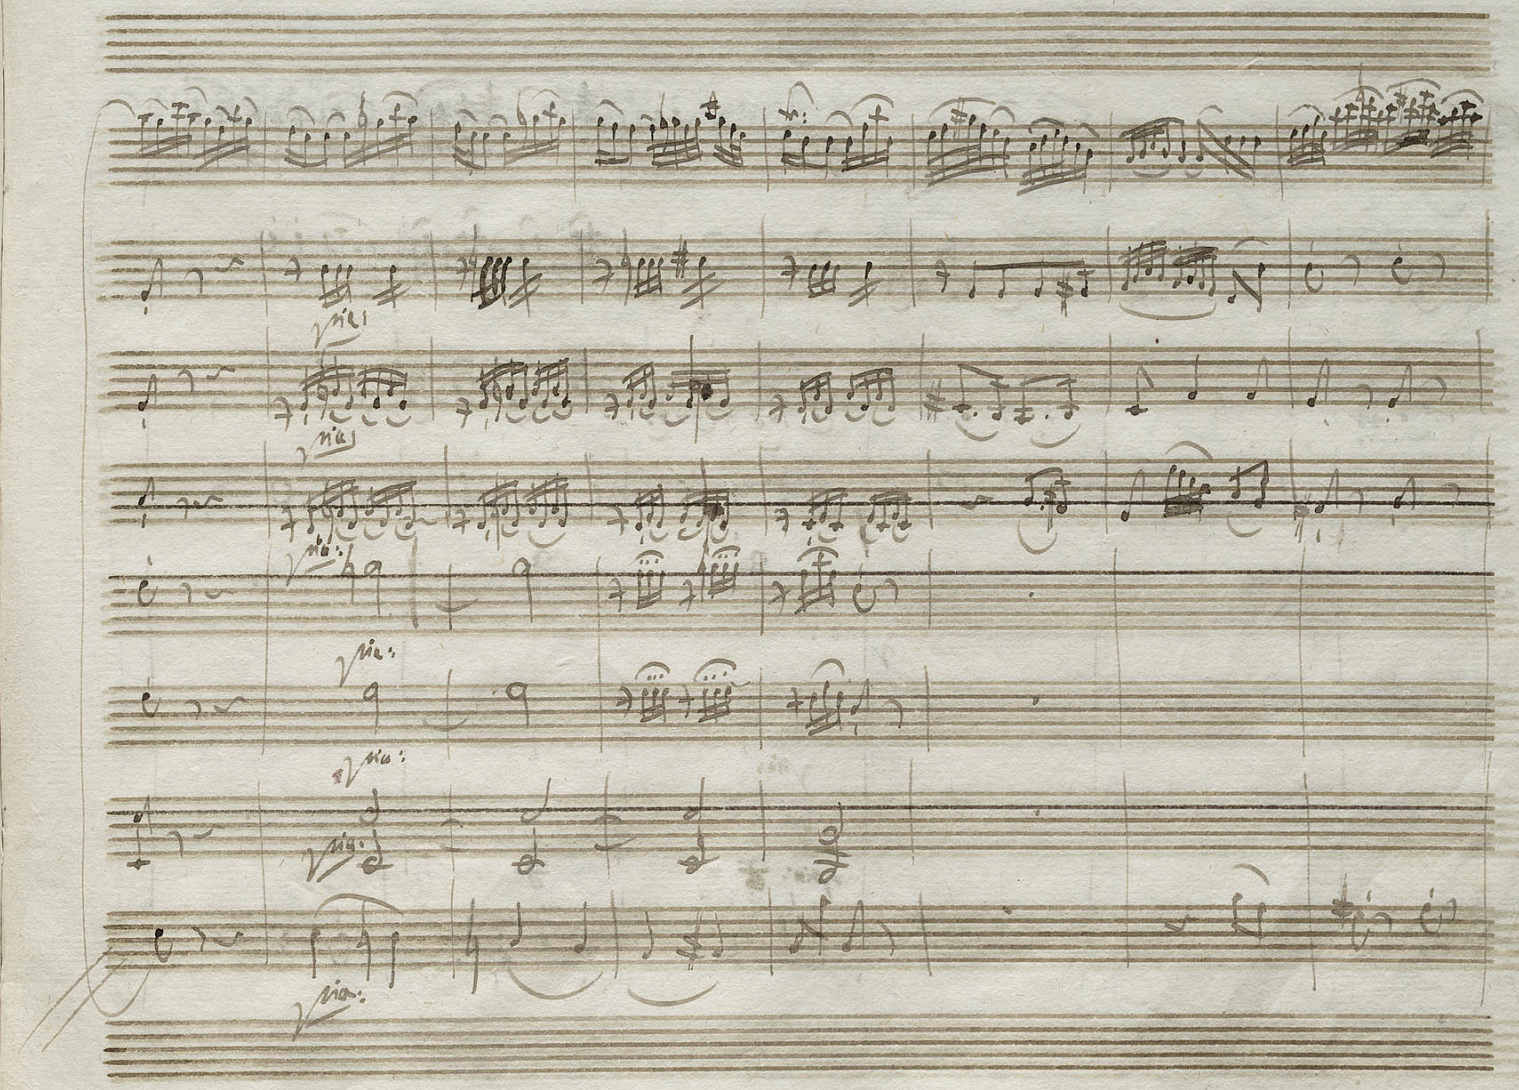 pia:
pia:
pia:
pia:
pia:
pia:
pia: